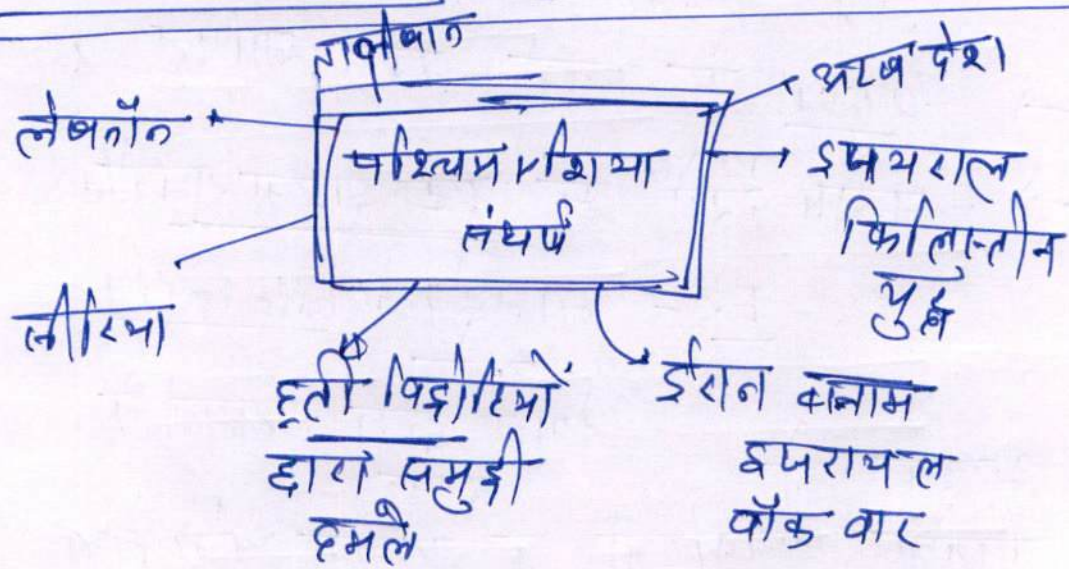 तालीबान
अरब देश
लेबनॉन
पश्चिम एशिया
संघर्ष
इजयराल
फिलिस्तीन
युद्ध
सीरिया
हूती विद्रोहियों
द्वारा समुद्री
हमले
ईरान बनाम
इजरायल
वॉक वार